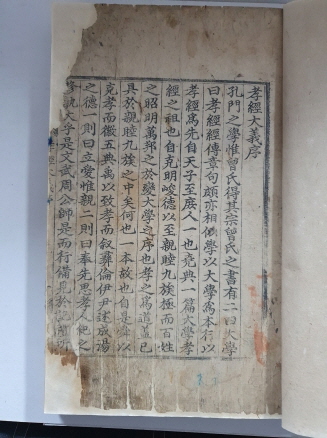 孝經大義序
孔門之學惟曾氏得其宗曾氏之書有二曰大學
曰孝經經傳章句頗亦相似學以大學爲本行以
孝經爲先自天子至庶人一也堯典一篇大學孝
經之祖也自克明峻德以至親睦九族極而百姓
之昭明萬邦之於變大學之序也孝之爲道蓋已
具於親睦九族之中矣何也一本故也自是舜以
克孝而徽五典禹以致孝而叙彝倫伊尹述成湯
之德一則曰立愛惟親二則曰奉先思孝人紀之
修孰大乎是文武周公帥是而行備見於記禮所